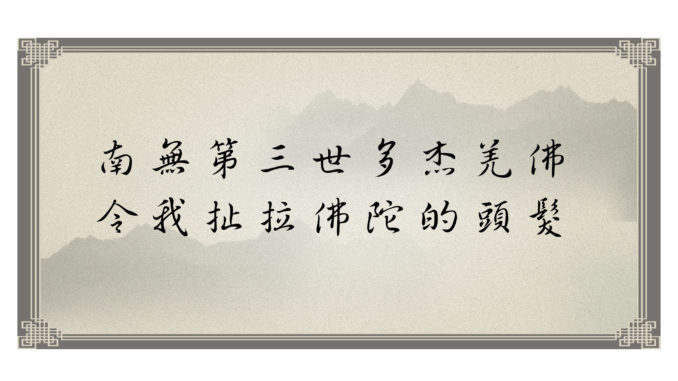 南無第三世多杰羌佛
令我扯拉佛陀的頭髮